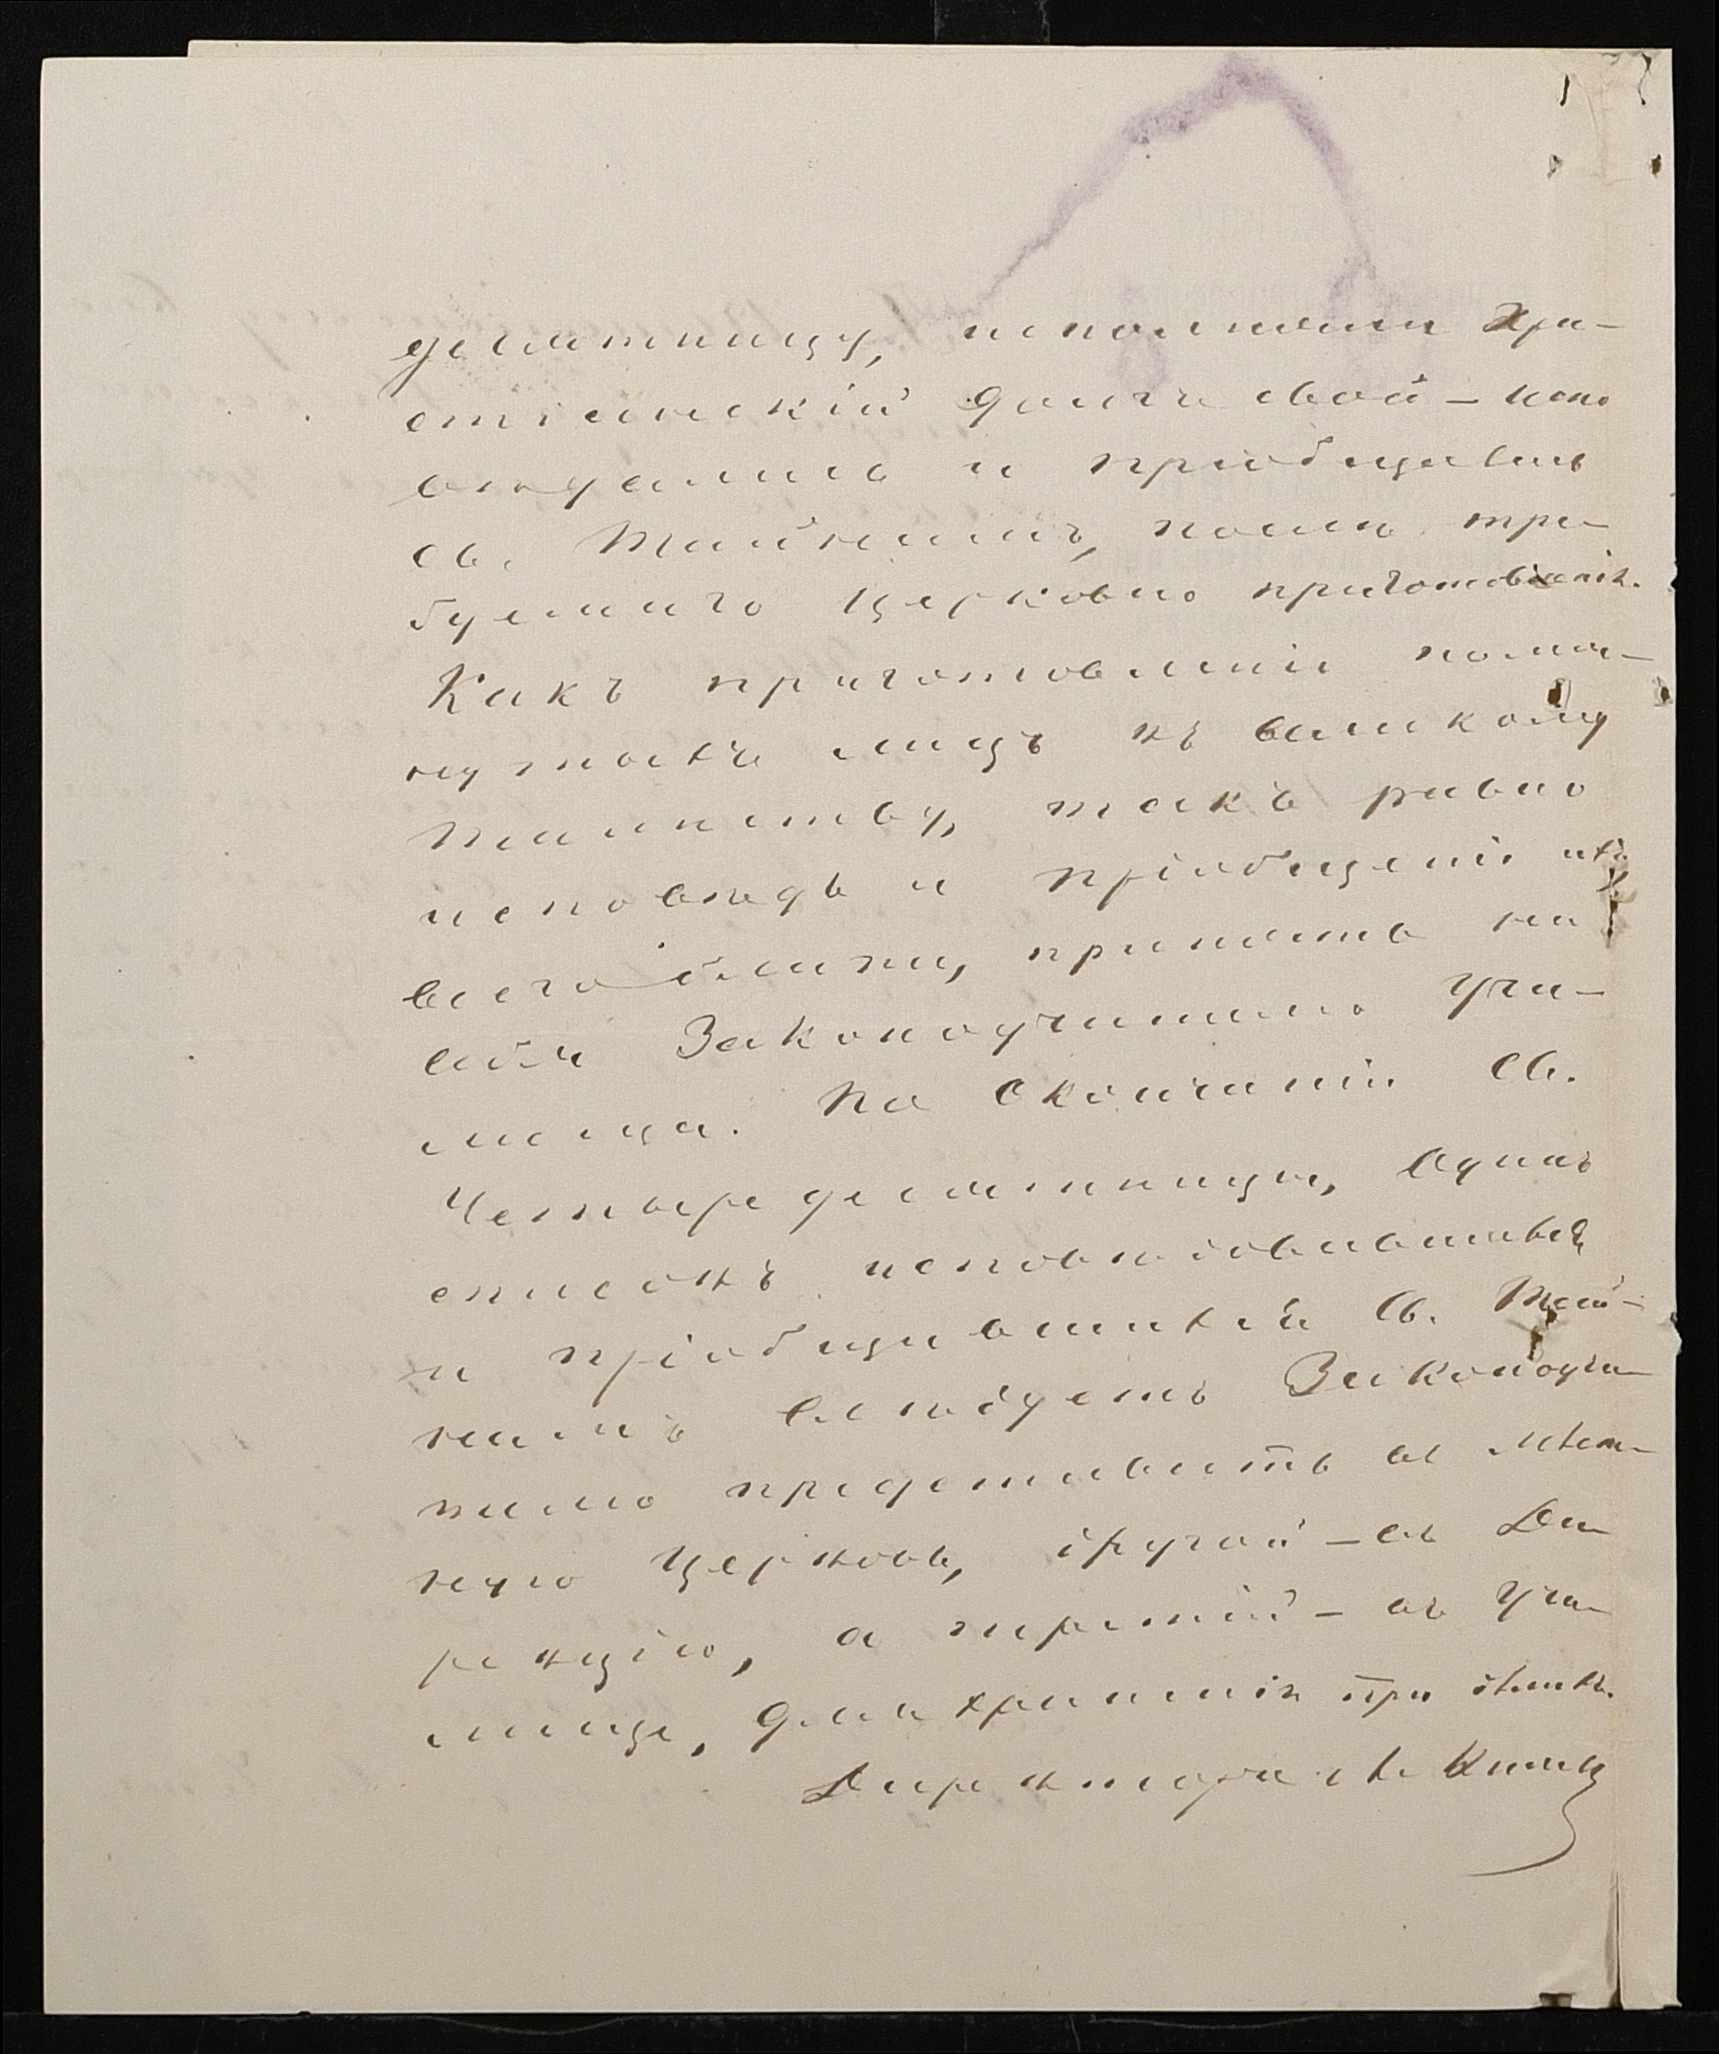 десятницу, исполнили Хри-
стіанскій долгъ свой – испо
вѣдались и пріобщались
Св. Тайнамъ, послѣ тре-
буемаго Церковью приготовленія.
Какъ приготовленіе помя-
нутыхъ лицъ къ великому
таинству, такъ равно
исповѣдь и пріобщеніе ихъ
всего ближе, принять на
себя Законоучителю Учи-
лища. По окончаніи Св.
Четыредесятницы, одинъ
списокъ исповѣдовавшихся
и пріобщившихся Св. Тай-
намъ слѣдуетъ Законоучи-
телю представить въ мѣст-
ную Церковь, другой – въ Ди-
рекцію, а третій – въ Учи-
лище, для храненія при дѣлахъ.
Директоръ